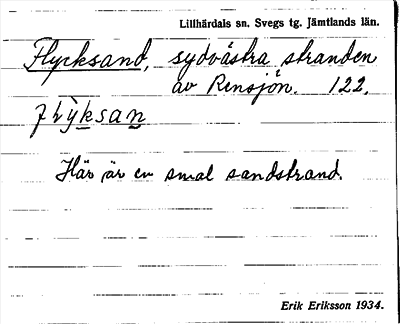 Lillhärdals sn. Svegs tg. Jämtlands län.
Flycksand, sydvästra stranden
av Rensjön. 122.
flỳksan
Här är en smal sandstrand.
Erik Eriksson 1934.